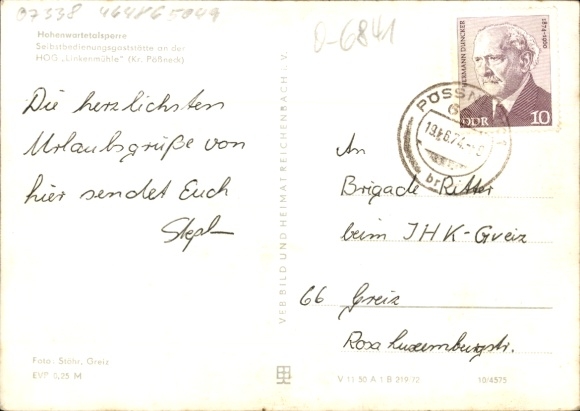 07338 464865049
0-6841
Hohenwartetalsperre
Selbstbedienungsgaststätte an der
HOG „Linkenmühle" (Kr. Pößneck)
Die herzlichsten
Urlaubsgrüße von
hier sendet Euch
Steph
HERMANN DUNCKER
1874-1960
DDR 10
PÖSSN
6
19.6.74
br
An
Brigade Ritter
beim IHK-Greiz
66 Greiz
Rosa Luxemburgstr.
VEB BILD UND HEIMAT REICHENBACH i. V.
Foto: Stöhr, Greiz
EVP 0,25 M
V 11 50 A 1 B 219 72
10/4575